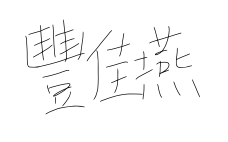 豐佳燕